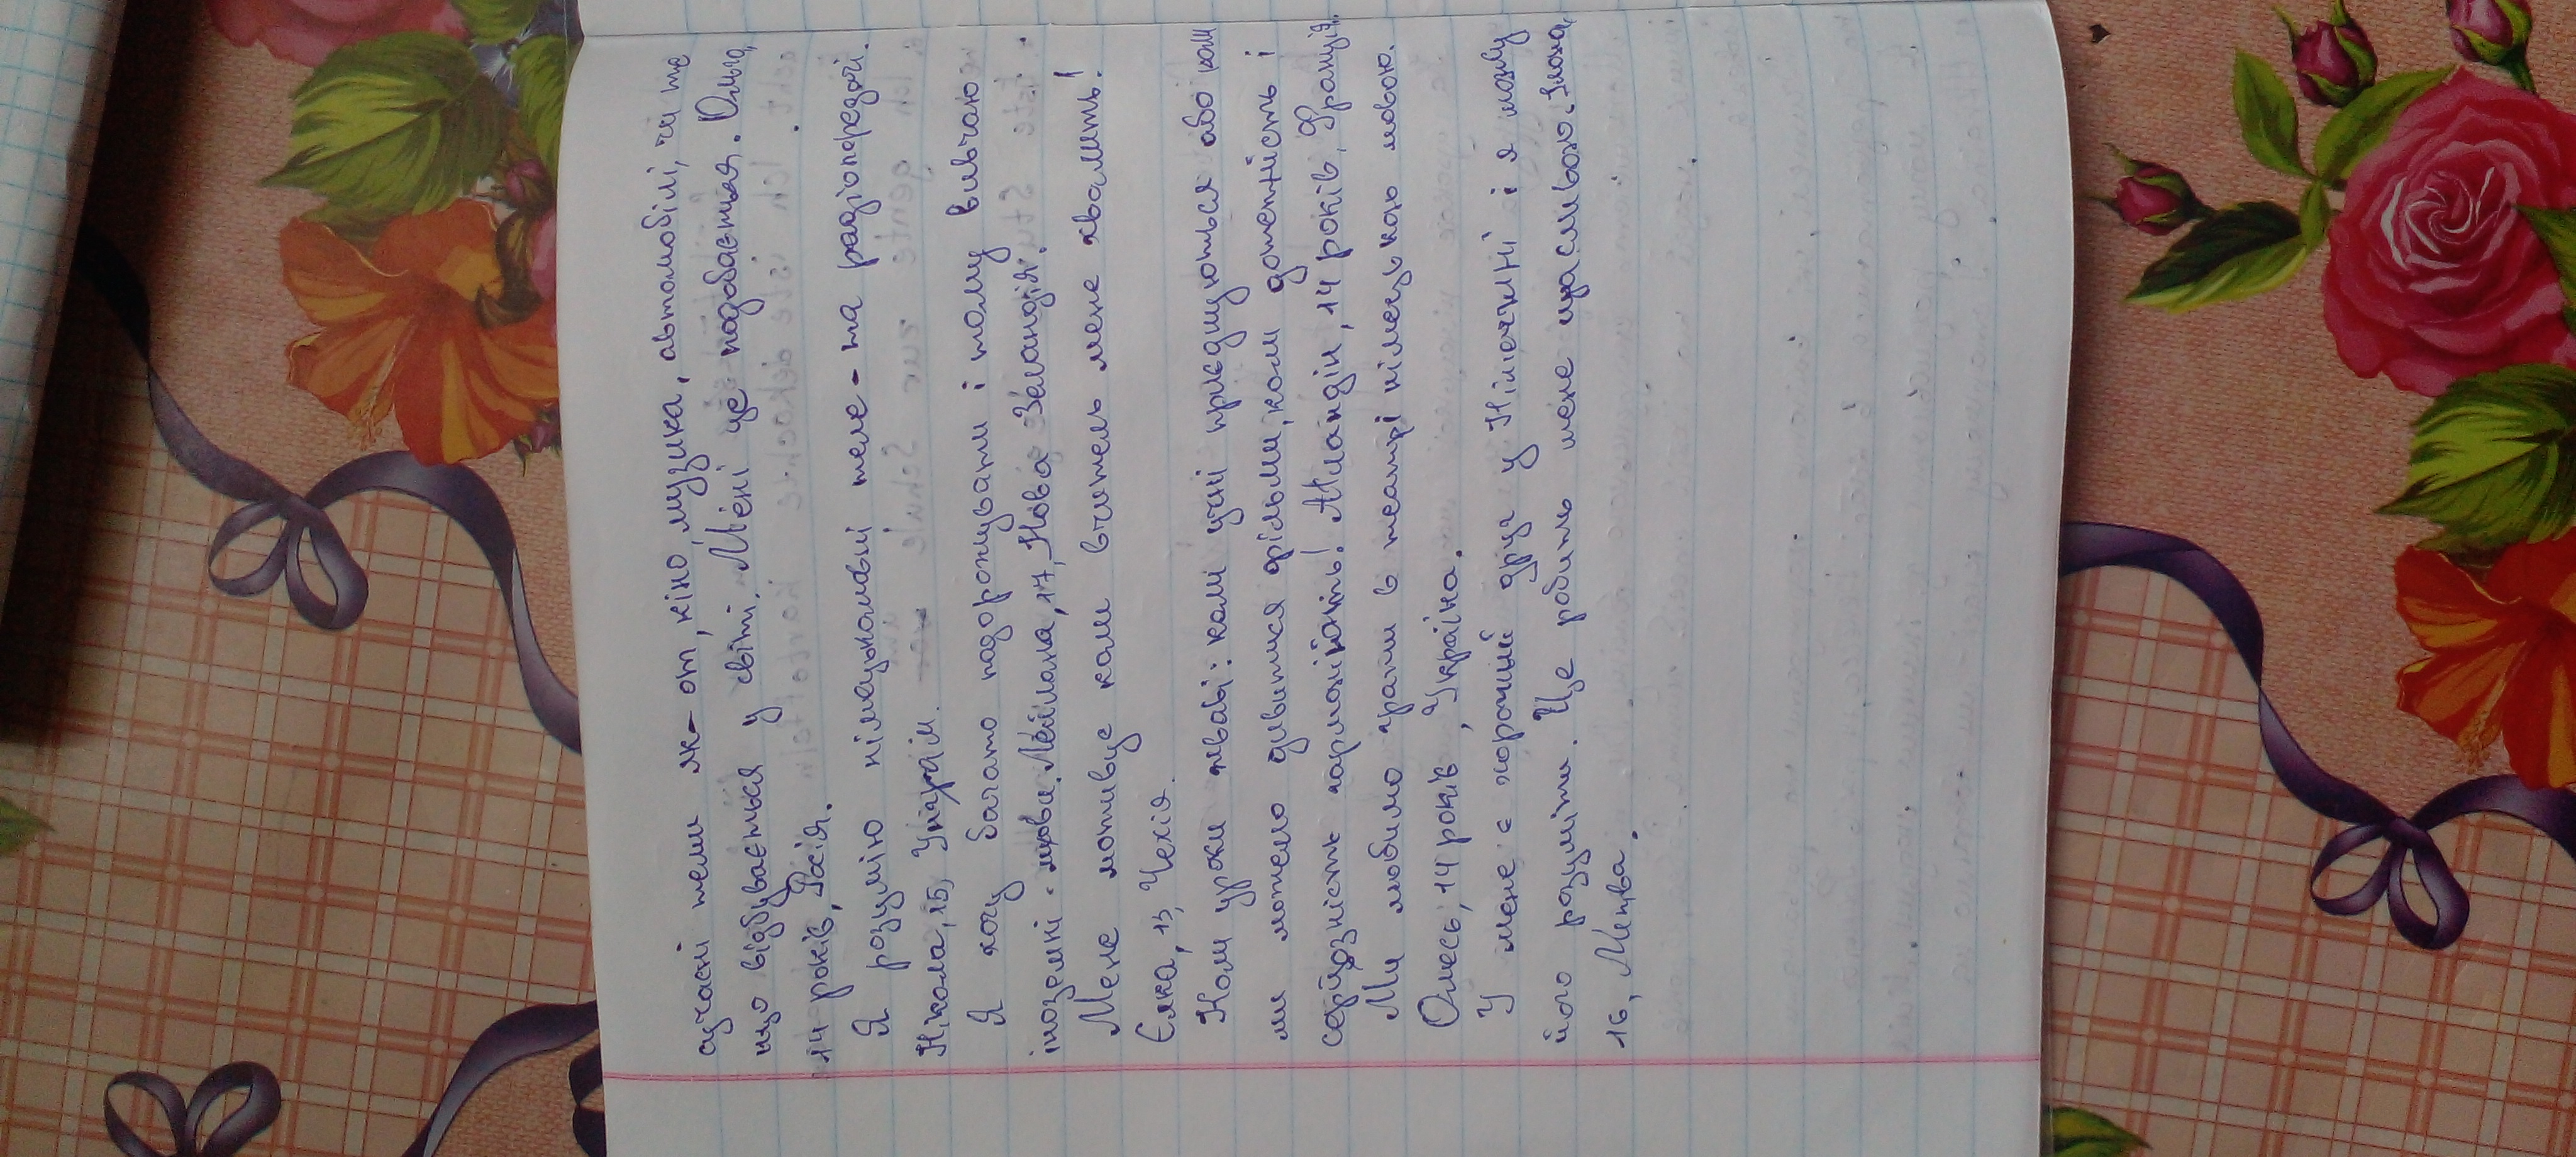 сучасні теми як-от, кіно, музика, автомобілі, чи те
що відбувається у світі. Мені це подобається. Ольга,
14 років, Росія.
Я розумію німецькомовні теле- та радіопередачі.
Нікола, 15,
Я хочу багато подорожувати і тому вивчаю
іноземні мови. Меілана, 17, Нова Зеландія.
Мене мотивує коли вчитель мене хвалить!
Єлка, 13, Чехія.
Коли уроки цікаві: коли учні приєднуються або коли
ми можемо дивитися фільми, коли дотепність і
серйозність гармоніюють! Аіландін, 14 років, Франція.
Ми любимо грати в театрі німецькою мовою.
Олесь, 14 років, Україна.
У мене є хороший друг у Німеччині і я можу
його розуміти. Це робить мене щасливою. Ілона,
16, Литва.